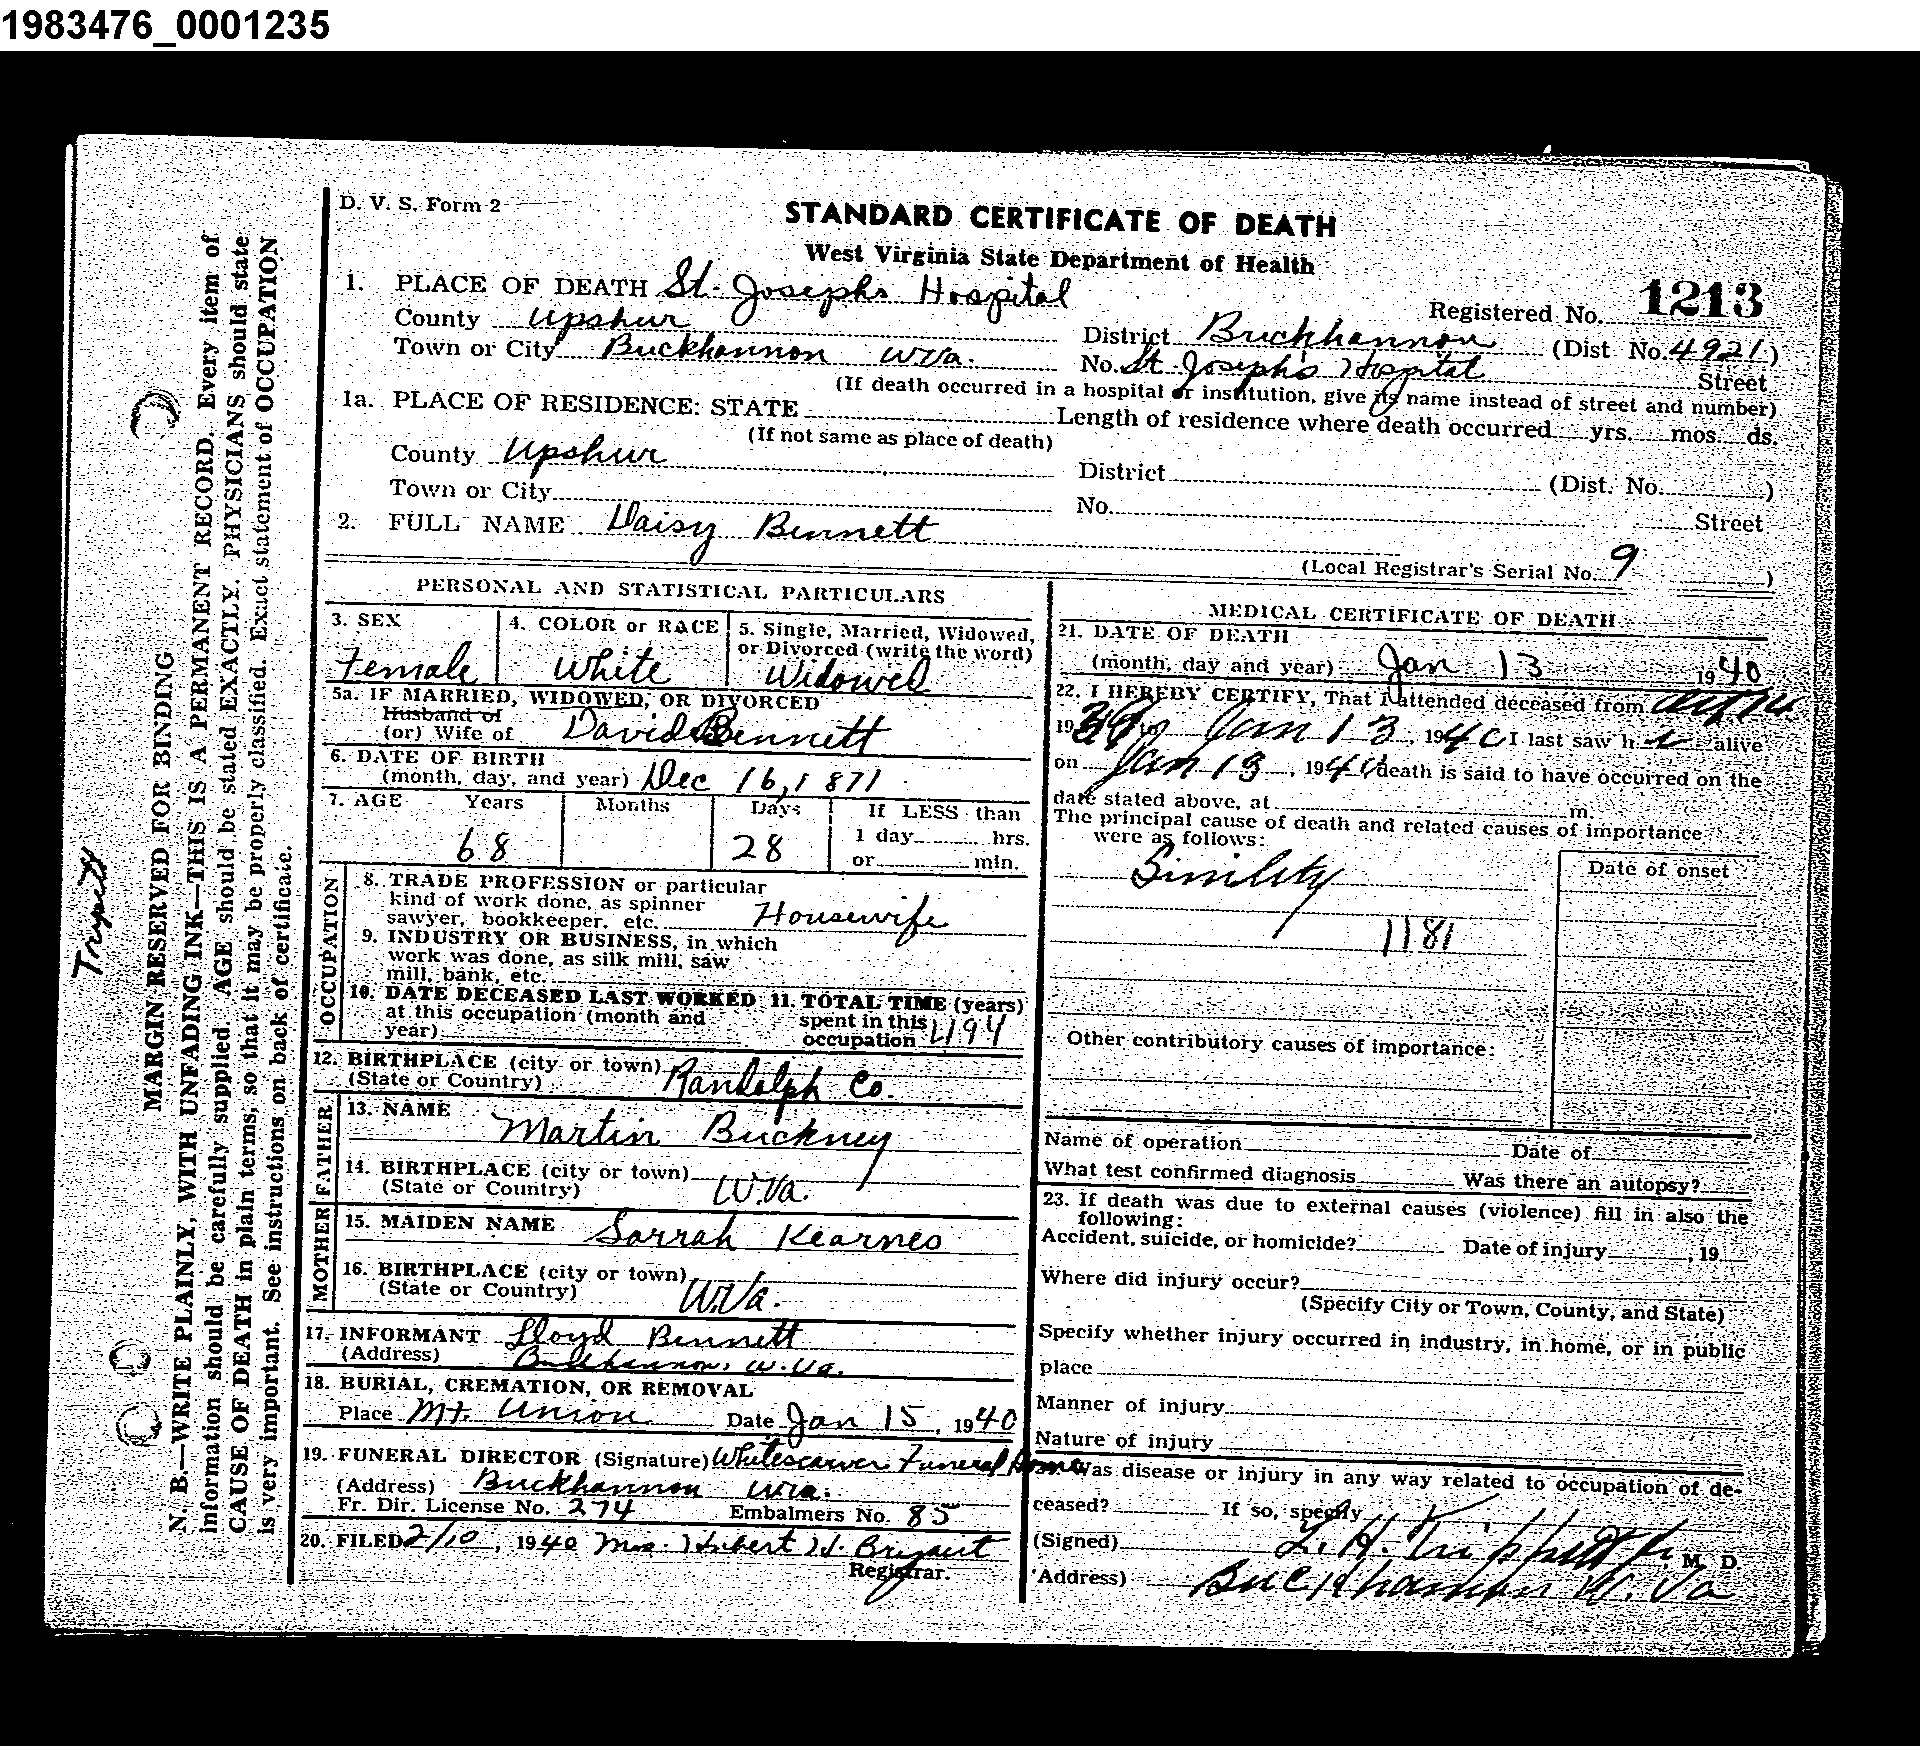 1983476_0001235
D. V. S. Form 2
STANDARD CERTIFICATE OF DEATH
West Virginia State Department of Health
1. PLACE OF DEATH St. Josephs Hospital
Registered No. 1213
County Upshur
District Buckhannon (Dist. No. 4921)
Town or City Buckhannon WVa.
No. St. Joseph's Hospital Street
(If death occurred in a hospital or institution, give its name instead of street and number)
1a. PLACE OF RESIDENCE: STATE
Length of residence where death occurred yrs. mos. ds.
(If not same as place of death)
County Upshur
District (Dist. No. )
Town or City
No. Street
2. FULL NAME Daisy Bennett
(Local Registrar's Serial No. 9 )
PERSONAL AND STATISTICAL PARTICULARS
3. SEX
Female
4. COLOR or RACE
White
5. Single, Married, Widowed,
or Divorced (write the word)
Widowed
5a. IF MARRIED, WIDOWED, OR DIVORCED
Husband of
(or) Wife of David Bennett
6. DATE OF BIRTH
(month, day, and year) Dec 16, 1871
7. AGE Years Months Days If LESS than
1 day hrs.
68 28 or min.
OCCUPATION
8. TRADE PROFESSION or particular
kind of work done, as spinner
sawyer, bookkeeper, etc. Housewife
9. INDUSTRY OR BUSINESS, in which
work was done, as silk mill, saw
mill, bank, etc.
10. DATE DECEASED LAST WORKED
at this occupation (month and
year)
11. TOTAL TIME (years)
spent in this
occupation 1194
12. BIRTHPLACE (city or town)
(State or Country) Randolph Co.
FATHER
13. NAME Martin Buckney
14. BIRTHPLACE (city or town)
(State or Country) W.Va.
MOTHER
15. MAIDEN NAME Sarrah Kearnes
16. BIRTHPLACE (city or town)
(State or Country) W.Va.
17. INFORMANT Lloyd Bennett
(Address) Buckhannon, W.Va.
18. BURIAL, CREMATION, OR REMOVAL
Place Mt. Union Date Jan 15, 1940
19. FUNERAL DIRECTOR (Signature) Whitescarver Funeral Home
(Address) Buckhannon WVa.
Fr. Dir. License No. 274 Embalmers No. 85
20. FILED 2/10, 1940 Mrs. Hubert H. Bryant
Registrar.
MEDICAL CERTIFICATE OF DEATH
21. DATE OF DEATH
(month, day and year) Jan 13 1940
22. I HEREBY CERTIFY, That I attended deceased from
1939 to Jan 13, 1940 I last saw h alive
on Jan 13, 1940 death is said to have occurred on the
date stated above, at m.
The principal cause of death and related causes of importance
were as follows:
Date of onset
Sinility
1181
Other contributory causes of importance:
Name of operation Date of
What test confirmed diagnosis Was there an autopsy?
23. If death was due to external causes (violence) fill in also the
following:
Accident, suicide, or homicide? Date of injury , 19
Where did injury occur?
(Specify City or Town, County, and State)
Specify whether injury occurred in industry, in home, or in public
place
Manner of injury
Nature of injury
Was disease or injury in any way related to occupation of de-
ceased? If so, specify
(Signed) L. H. Trippett Jr M. D.
(Address) Buckhannon W. Va
MARGIN RESERVED FOR BINDING
N. B.—WRITE PLAINLY, WITH UNFADING INK—THIS IS A PERMANENT RECORD. Every item of
information should be carefully supplied. AGE should be stated EXACTLY. PHYSICIANS should state
CAUSE OF DEATH in plain terms, so that it may be properly classified. Exact statement of OCCUPATION
is very important. See instructions on back of certificate.
Tripett